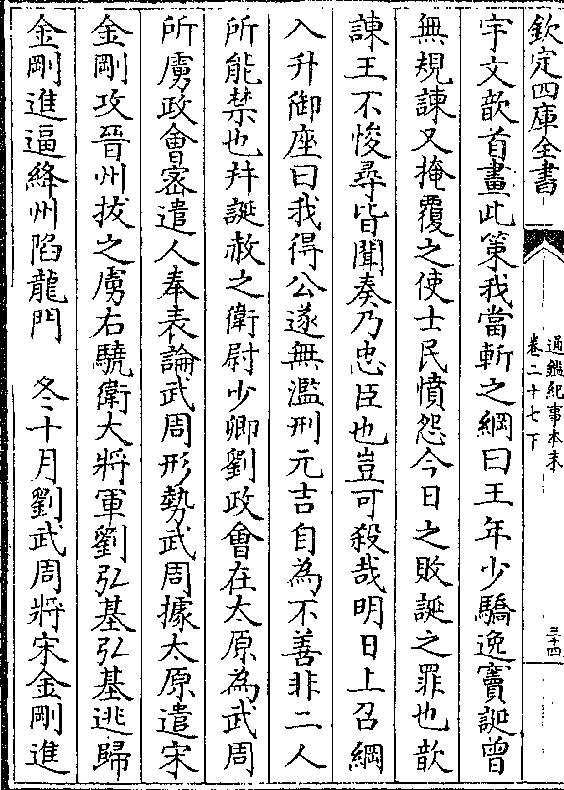 欽定四庫全書
通鑑紀事本末
卷二十七下
三十四
宇文歆首畫此策我當斬之綱曰王年少驕逸竇誕曾
無規諫又掩覆之使士民憤怨今日之敗誕之罪也歆
諫王不悛尋皆聞奏乃忠臣也豈可殺哉明日上召綱
入升御座曰我得公遂無濫刑元吉自為不善非二人
所能禁也并誕赦之衛尉少卿劉政會在太原為武周
所虜政會密遣人奉表論武周形勢武周據太原遣宋
金剛攻晉州拔之虜右驍衛大將軍劉弘基弘基逃歸
金剛進逼絳州陷龍門　冬十月劉武周將宋金剛進